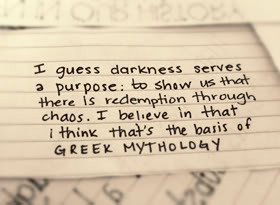 I guess darkness serves
a purpose: to show us that
there is redemption through
chaos. I believe in that
i think that's the basis of
GREEK MYTHOLOGY